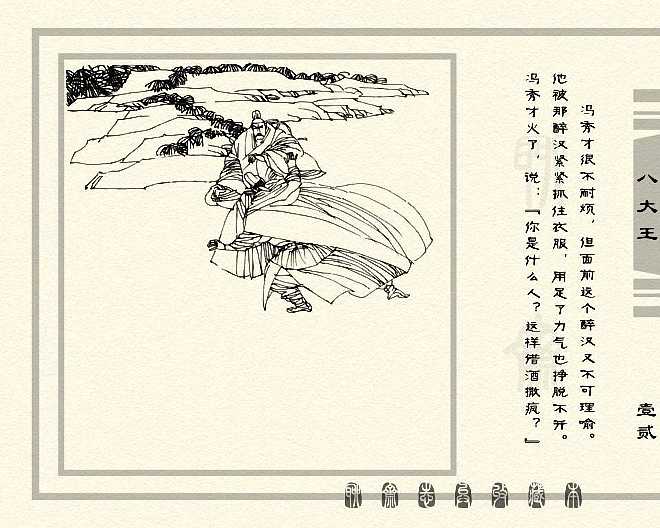 冯秀才很不耐烦，但面前这个醉汉又不可理喻。
他被那醉汉紧紧抓住衣服，用足了力气也挣脱不开。
冯秀才火了，说：“你是什么人？这样借酒撒疯？”
八大王
壹贰